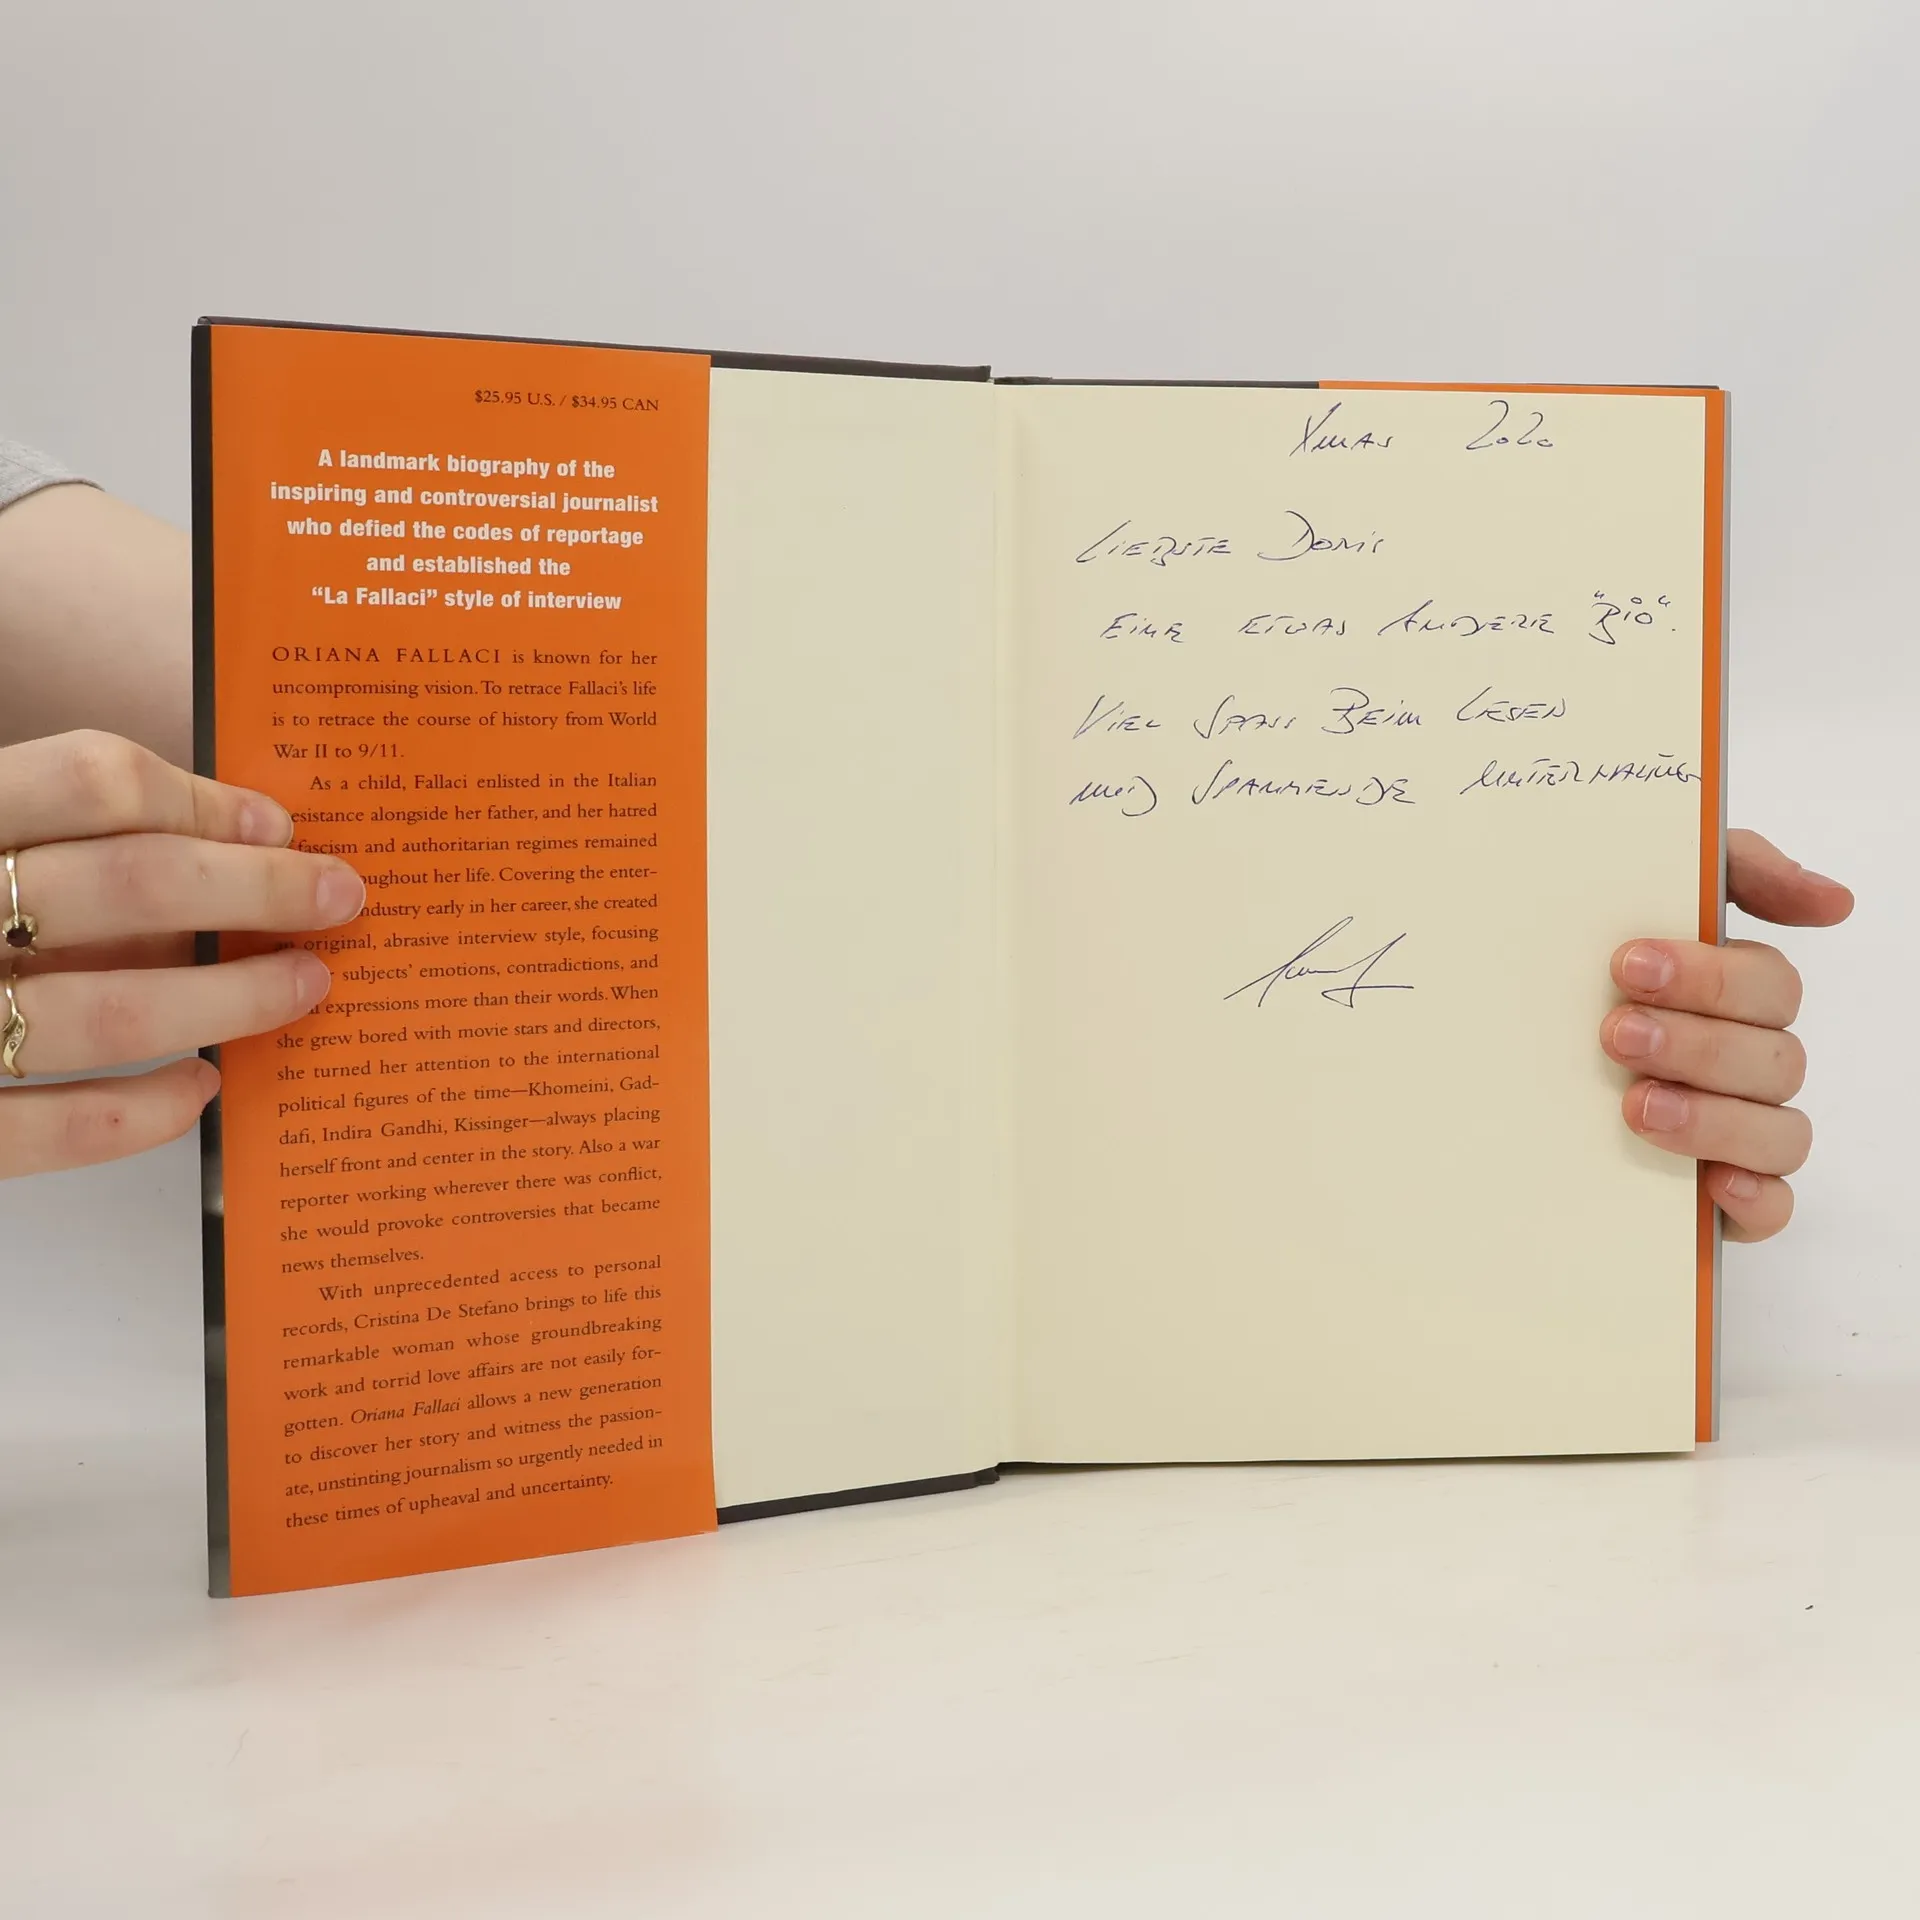 $25.95 U.S. / $34.95 CAN
A landmark biography of the
inspiring and controversial journalist
who defied the codes of reportage
and established the
“La Fallaci” style of interview
ORIANA FALLACI is known for her
uncompromising vision. To retrace Fallaci’s life
is to retrace the course of history from World
War II to 9/11.
As a child, Fallaci enlisted in the Italian
esistance alongside her father, and her hatred
fascism and authoritarian regimes remained
oughout her life. Covering the enter-
ndustry early in her career, she created
an original, abrasive interview style, focusing
subjects’ emotions, contradictions, and
expressions more than their words. When
she grew bored with movie stars and directors,
she turned her attention to the international
political figures of the time—Khomeini, Gad-
dafi, Indira Gandhi, Kissinger—always placing
herself front and center in the story. Also a war
reporter working wherever there was conflict,
she would provoke controversies that became
news themselves.
With unprecedented access to personal
records, Cristina De Stefano brings to life this
remarkable woman whose groundbreaking
work and torrid love affairs are not easily for-
gotten. Oriana Fallaci allows a new generation
to discover her story and witness the passion-
ate, unstinting journalism so urgently needed in
these times of upheaval and uncertainty.
XMAS 2020
LIEBSTE DORIS
EINE ETWAS ANDERE "BIO".
VIEL SPASS BEIM LESEN
UND SPANNENDE UNTERHALTUNG